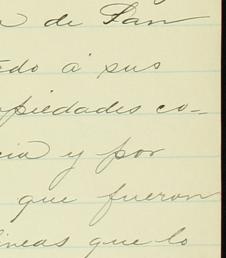 a de San
edo á sus
opiedades co-
cia y por
que fueron
líneas que lo